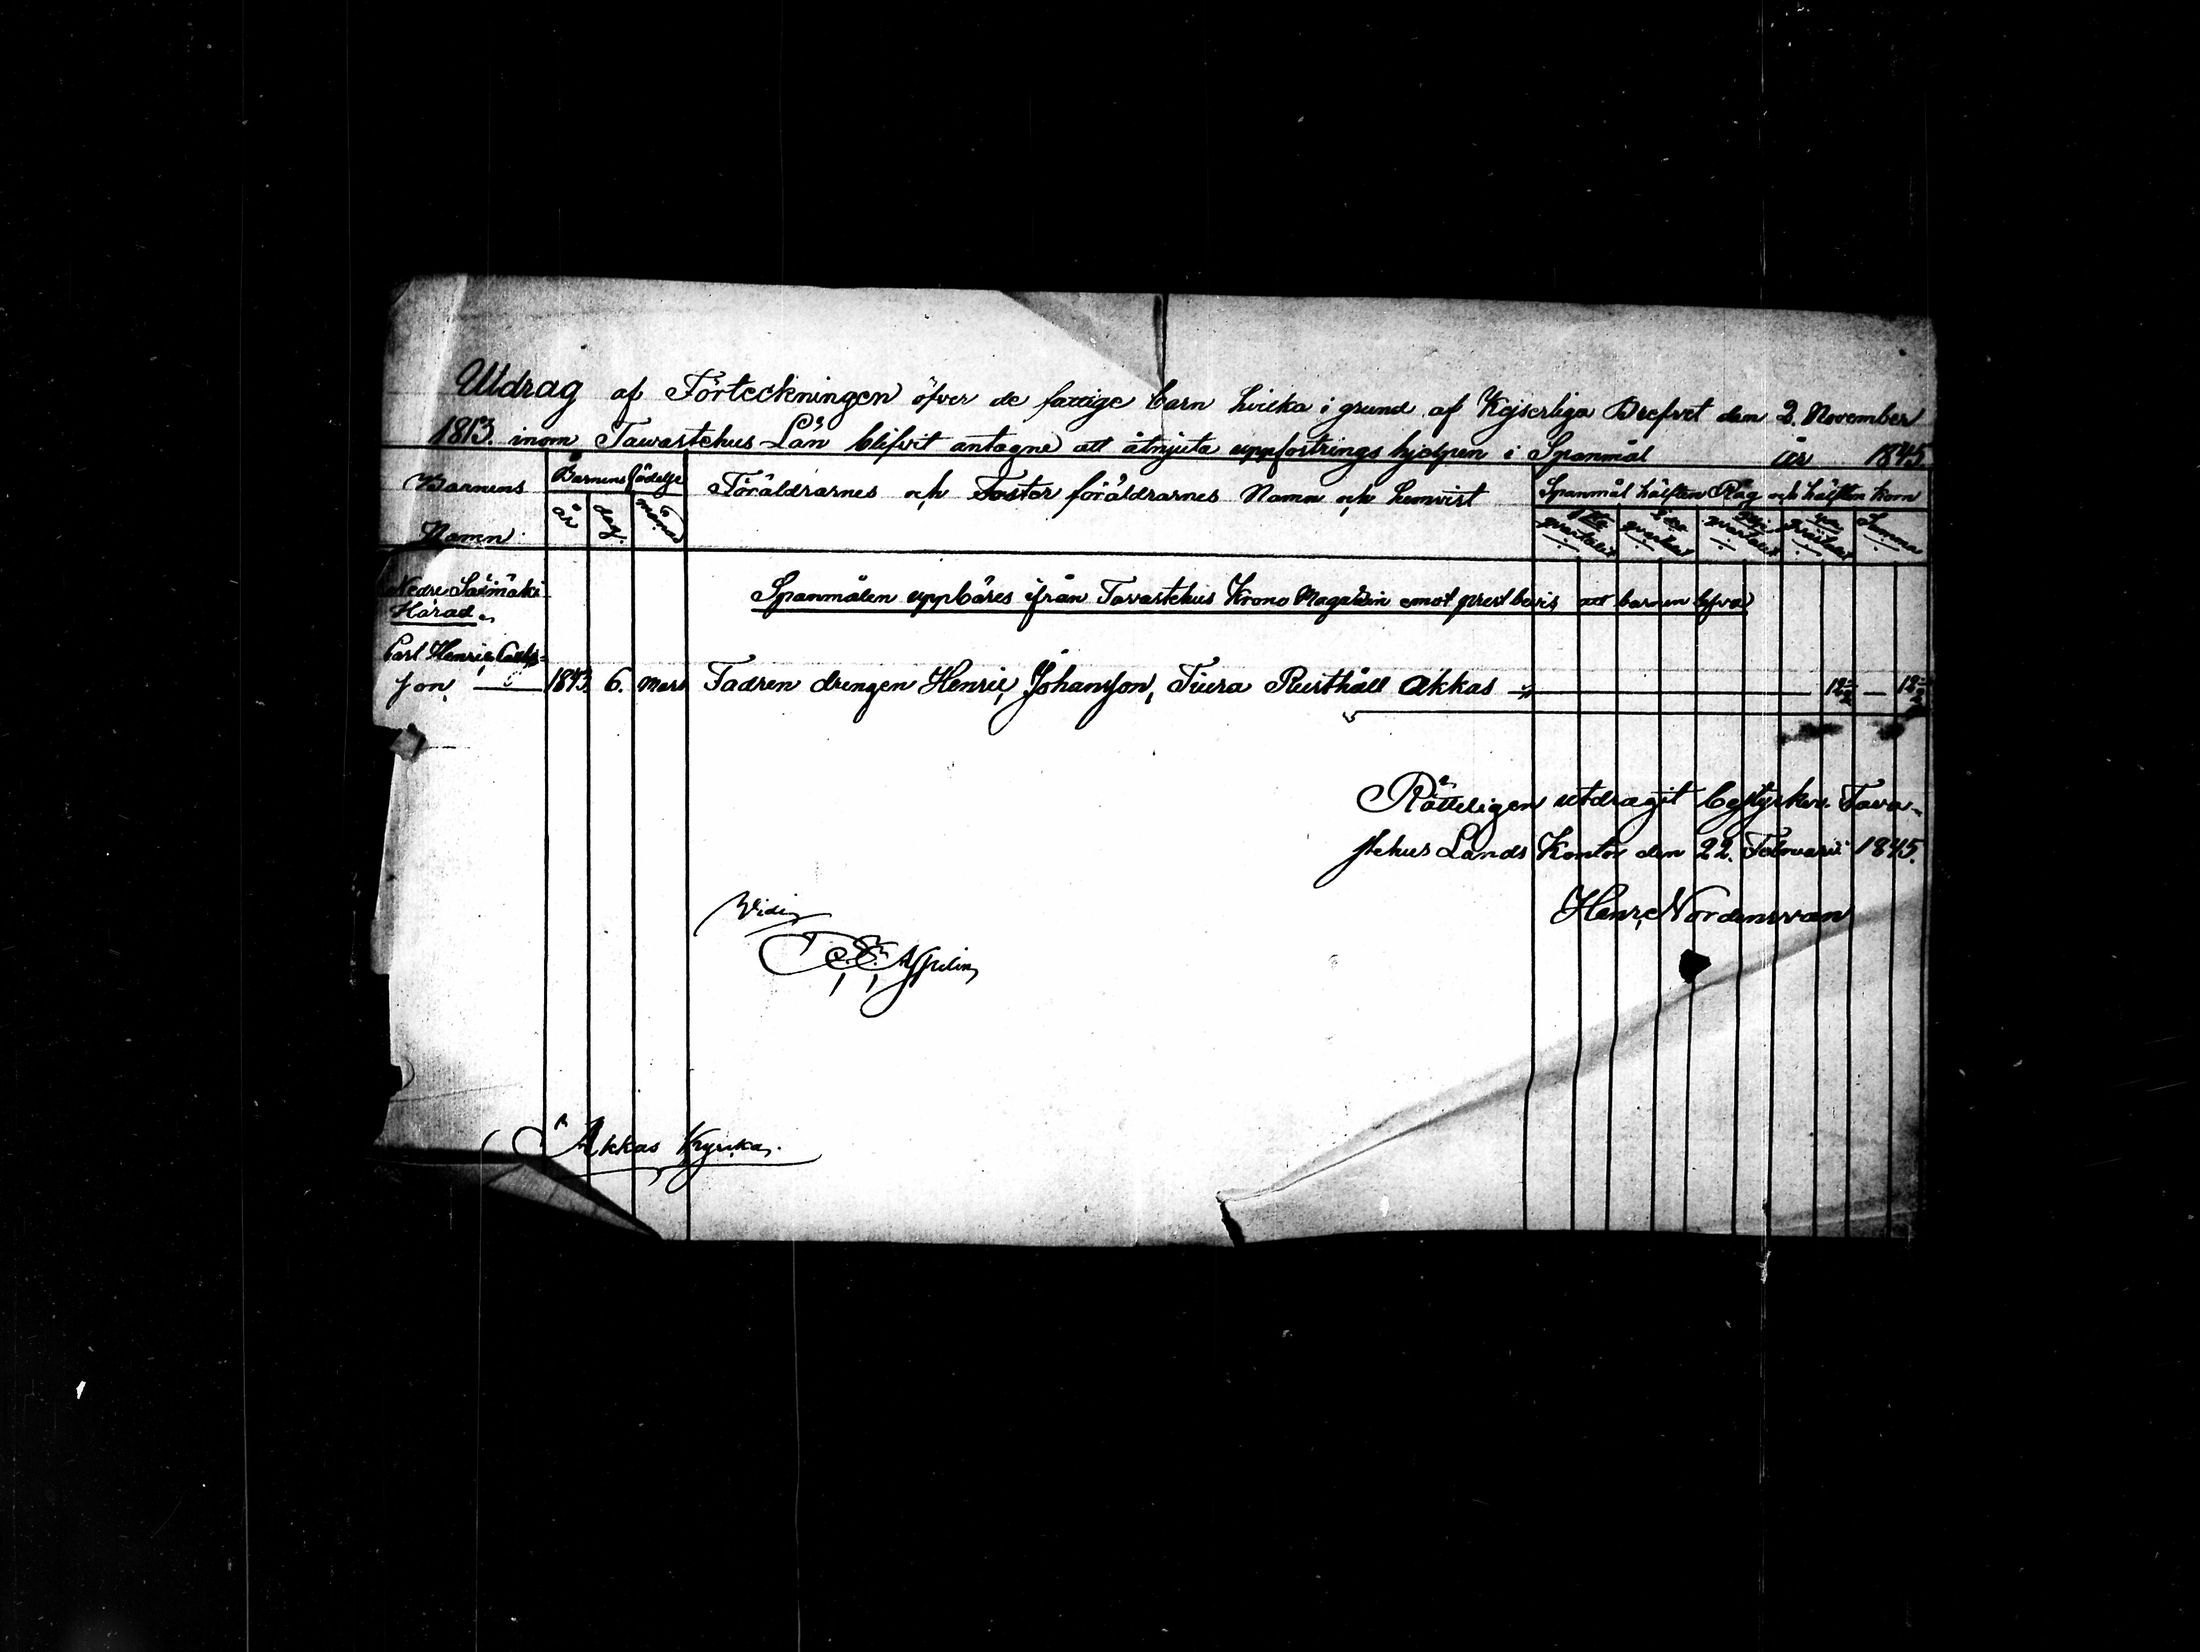 Utdrag af Förteckningen öfver de fattige barn hvilka i grund af Kejserliga Brefvet den 2. November
1813. inom Tawastehus Län blifvit antagne att åtnjuta uppfostrings hjelpen i Spanmål år 1845.
Barnens Namn
Barnens födelse
år dag. månad
Föräldrarnes och Foster föräldrarnes Namn och hemvist
Spanmål hälften Råg och hälften Korn
1sta qvartalet 2dra qvartalet 3dje qvartalet 4de qvartalet Summa
Nedre Sääxmäki
Härad.
Spanmålen uppbäres ifrån Tavastehus Krono Magazin emot prest bevis att barnen lefva
Carl Henric
son 1843. 6. Mars Fadren drengen Henric Johansson, Rusthåll Akkas
Rätteligen utdragit bestyrker. Tava-
stehus Lands Kontor den 22. Februarii 1845.
Henric Nordensvan
Vidi
Akkas Kyrka.